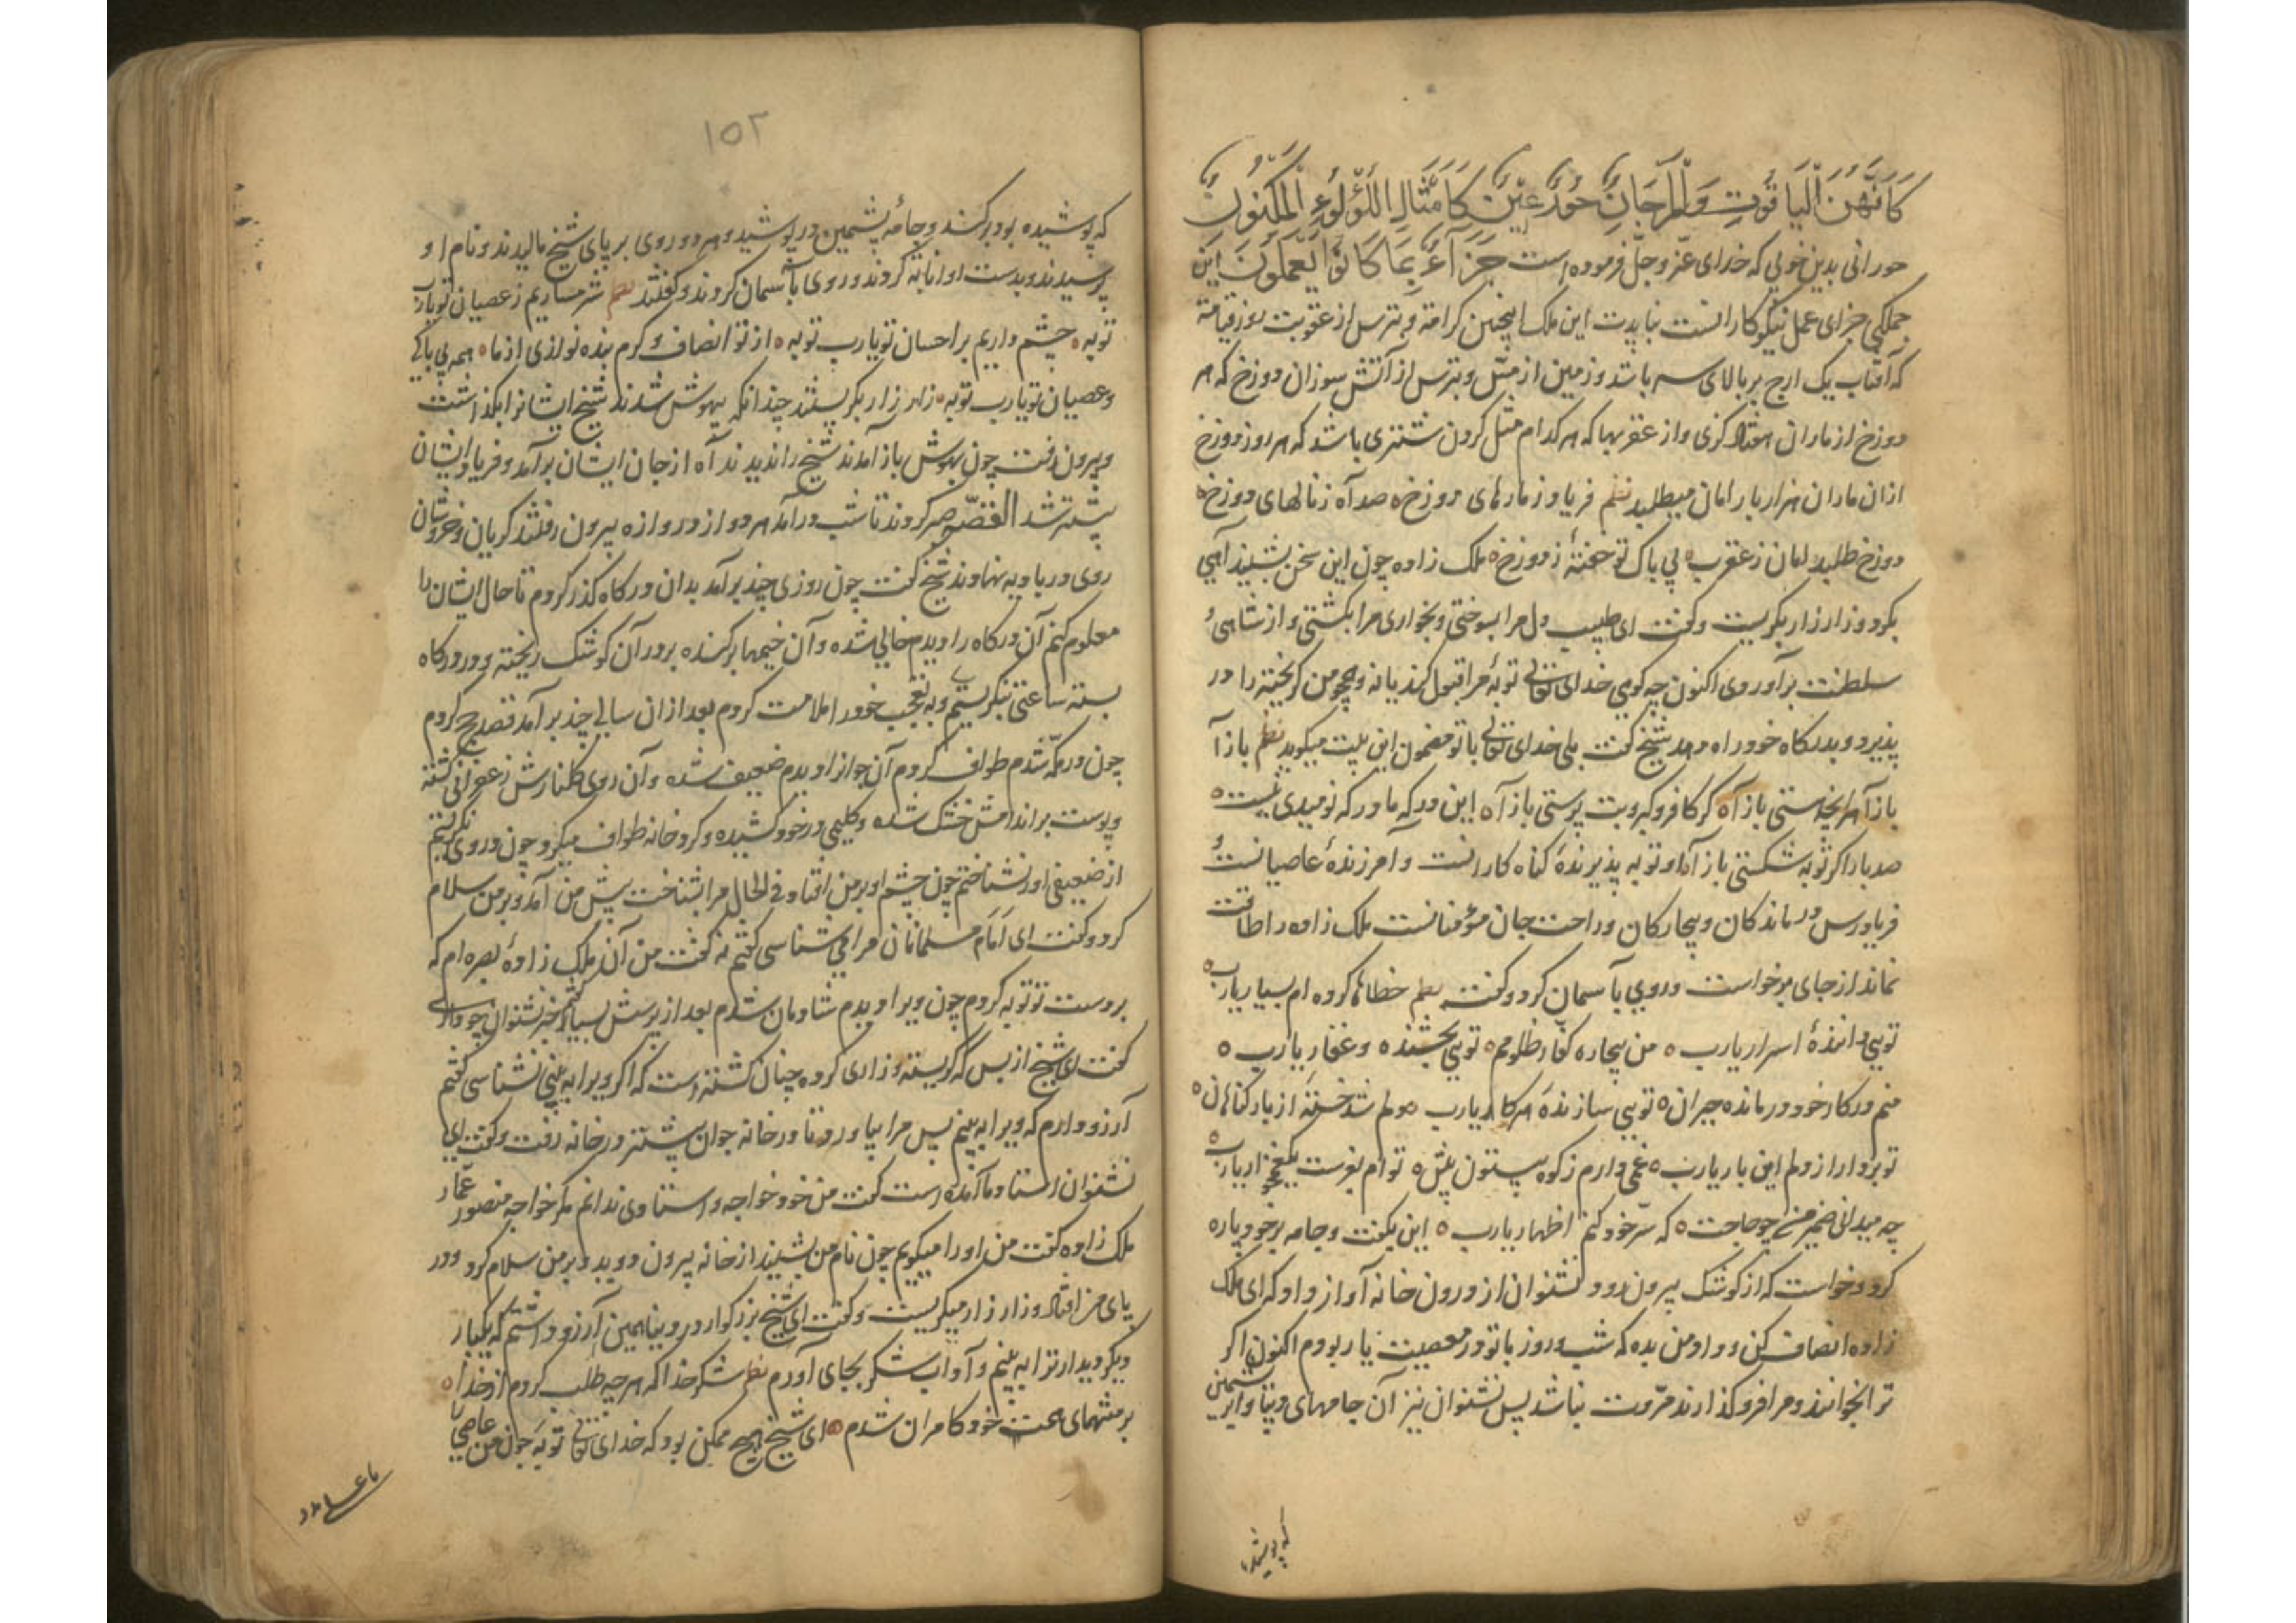 كَأَنَّهُنَّ الْيَاقُوتُ وَالْمَرْجَانُ حُورٌ عِينٌ كَأَمْثَالِ اللُّؤْلُؤِ الْمَكْنُونِ
حورانی بدین خوبی که خدای عزّ و جلّ فرموده است جَزَاءً بِمَا كَانُوا يَعْمَلُونَ این
جملکی جزای عمل نیکوکارانست نبایدت این ملک اینچنین کرامة و بترس از عقوبت روز قیامة
که آفتاب یک ارج بر بالای سر باشد و زمین از مس و بترس از آتش سوزان دوزخ که هر
دوزخ از ماران هفتاد کزی و از عقربها که هر کدام مثل کردن شتری باشد که هر روز دوزخ
ازان ماران هزار بار امان میطلبد نظم فریاد ز مارهای دوزخ ه صد آه ز نالهای دوزخ ه
دوزخ طلبد امان ز عقرب ه بی باک تو خفتهٔ ز دوزخ ه ملک زاده چون این سخن بشنید آهی
بکرد و زار زار بکریست و کفت ای طبیب دل مرا بسوختی و بخواری مرا بکشتی و از شاهی و
سلطنت برآوردی اکنون چه کویی خدای تعالی توبهٔ مرا قبول کند یا نه و همچو من کریخته را در
پذیرد و بدرکاه خود راه دهد شیخ کفت بلی خدای تعالی با تو مضمون این بیت میکوید نظم باز آ
باز آ هر آنچه هستی باز آ ه کر کافر و کبر و بت پرستی باز آ ه این درکه ما درکه نومیدی نیست ه
صد بار اکر توبه شکستی باز آ او توبه پذیرندهٔ کناه کارانست و آمرزندهٔ عاصیانست و
فریادرس درماندکان و بیچارکان و راحت جان مؤمنانست ملک زاده را طاقت
نماند از جای برخواست و روی بآسمان کرد و کفت نظم خطاها کرده ام بسیار یارب ه
تویی دانندهٔ اسرار یارب ه من بیچاره کفّار ظلومم ه تویی بخشنده و غفار یارب ه
منم در کار خود درمانده حیران ه تویی سازندهٔ هر کار یارب دلم شد خسته از بار کناهان ه
تو بردار از دلم این بار یارب ه غمی دارم ز کوه بیستون بیش ه
چه میدانی ضمیر من چه حاجت ه که سرّ خود کنم اظهار یارب ه این بکفت و جامه بر خود پاره
کرد و خواست که از کوشک بیرون رود نشنوان از درون خانه آواز داد که ای ملک
زاده انصاف کن و داد من بده که شب و روز با تو در معصیت یار بودم اکنون اکر
ترا بخوانند و مرا فروکذارند مروّت نباشد پس نشنوان نیز آن جامهای دیبا و ابریشمین
که پوشیده
۱۵۲
که پوشیده بود برکند و جامهٔ پشمین درپوشید و هر دو روی بر پای شیخ مالیدند و نام او
پرسیدند و بدست او انابة کردند و روی بآسمان کردند و کفتند نظم شرمساریم ز عصیان تو یارب
توبه ه چشم داریم بر احسان تو یارب توبه ه از تو انصاف و کرم بنده نوازی از ما ه همه بی باکی
و عصیان تو یارب توبه ه زار زار بکریستند چندانکه بیهوش شدند شیخ ایشانرا بکذاشت
و بیرون رفت چون بهوش باز آمدند شیخ را ندیدند آه از جان ایشان برآمد و فریاد ایشان
بیشتر شد القصّه صبر کردند تا شب درآمد هر دو از دروازه بیرون رفتند کریان و خروشان
روی در بادیه نهادند شیخ کفت چون روزی چند برآمد بدان درکاه کذر کردم تا حال ایشان را
معلوم کنم آن درکاه را دیدم خالی شده و آن خیمها برکنده بر در آن کوشک ریخته و در درکاه
بسته ساعتی بنکریستم و به تعجب خود را ملامت کردم بعد ازان سالی چند برآمد قصد حج کردم
چون در مکّه شدم طواف کردم آن جوانرا دیدم ضعیف شده و آن روی کلنارش زعفرانی کشته
و پوست بر اندامش خشک شده و کلیمی در خود کشیده و کرد خانه طواف میکرد چون در وی نکریستم
از ضعیفی او را نشناختم چون چشم او بر من افتاد فی الحال مرا بشناخت پیش من آمد و بر من سلام
کرد و کفت ای امام مسلمانان مرا می شناسی کفتم نه کفت من آن ملک زادهٔ بصره ام که
بر دست تو توبه کردم چون ویرا دیدم شادمان شدم بعد از پرسش بسیار کفتم خبر نشنوان چه داری
کفت ای شیخ از بس که کریسته و زاری کرده چنان کشته است که اکر ویرا به بینی نشناسی کفتم
آرزو دارم که ویرا به بینم پس مرا بیاورد تا در خانه جوان پیشتر در خانه رفت و کفت ای
نشنوان استاد ما آمده است کفت من خود خواجه و استادی ندانم مکر خواجه منصور عمّار
ملک زاده کفت من او را میکویم چون نام من بشنید از خانه بیرون دوید و بر من سلام کرد و در
پای من افتاد و زار زار میکریست و کفت ای شیخ بزرکوار در دنیا همین آرزو داشتم که یکبار
دیکر دیدار ترا به بینم و آداب شکر بجای آورم نظم شکر خدا که هر چه طلب کردم از خدا ه
بر منتهای همت خود کامران شدم ه ای شیخ هیچ ممکن بود که خدای تعالی توبهٔ چون من عاصی را